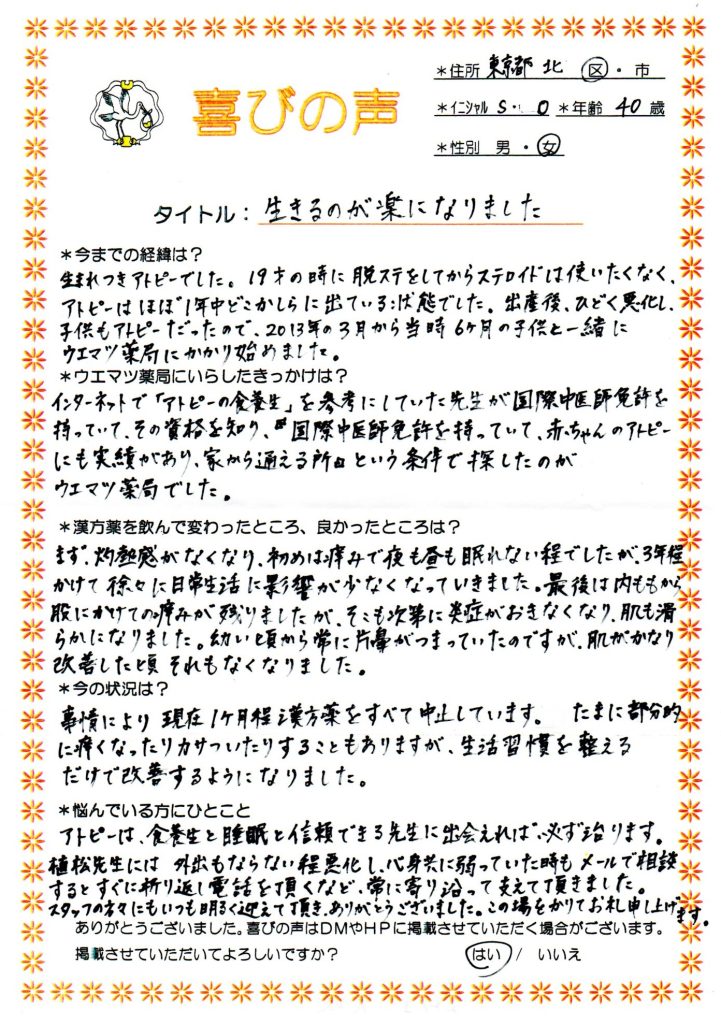 喜びの声
＊住所 東京都 北 区・市
＊イニシャル S.O ＊年齢 40 歳
＊性別 男・女
タイトル：生きるのが楽になりました
＊今までの経緯は？
生まれつきアトピーでした。19才の時に脱ステをしてからステロイドは使いたくなく、
アトピーはほぼ1年中どこかしらに出ている状態でした。出産後、ひどく悪化し、
子供もアトピーだったので、2013年の3月から当時6ヶ月の子供と一緒に
ウエマツ薬局にかかり始めました。
＊ウエマツ薬局にいらしたきっかけは？
インターネットで「アトピーの食養生」を参考にしていた先生が国際中医師免許を
持っていて、その資格を知り、国際中医師免許を持っていて、赤ちゃんのアトピー
にも実績があり、家から通える所という条件で探したのが
ウエマツ薬局でした。
＊漢方薬を飲んで変わったところ、良かったところは？
まず、灼熱感がなくなり、初めは痒みで夜も昼も眠れない程でしたが、3年程
かけて徐々に日常生活に影響が少なくなっていきました。最後は内ももから
股にかけての痒みが残りましたが、そこも次第に炎症がおきなくなり、肌も滑
らかになりました。幼い頃から常に片鼻がつまっていたのですが、肌がかなり
改善した頃それもなくなりました。
＊今の状況は？
事情により現在1ヶ月程漢方薬をすべて中止しています。 たまに部分的
に痒くなったりカサついたりすることもありますが、生活習慣を整える
だけで改善するようになりました。
＊悩んでいる方にひとこと
アトピーは、食養生と睡眠と信頼できる先生に出会えれば必ず治ります。
植松先生には 外出もならない程悪化し、心身共に弱っていた時もメールで相談
するとすぐに折り返し電話を頂くなど、常に寄り沿って支えて頂きました。
スタッフの方々にもいつも明るく迎えて頂き、ありがとうございました。この場をかりてお礼申し上げます。
ありがとうございました。喜びの声はＤＭやＨＰに掲載させていただく場合がございます。
掲載させていただいてよろしいですか？ はい / いいえ